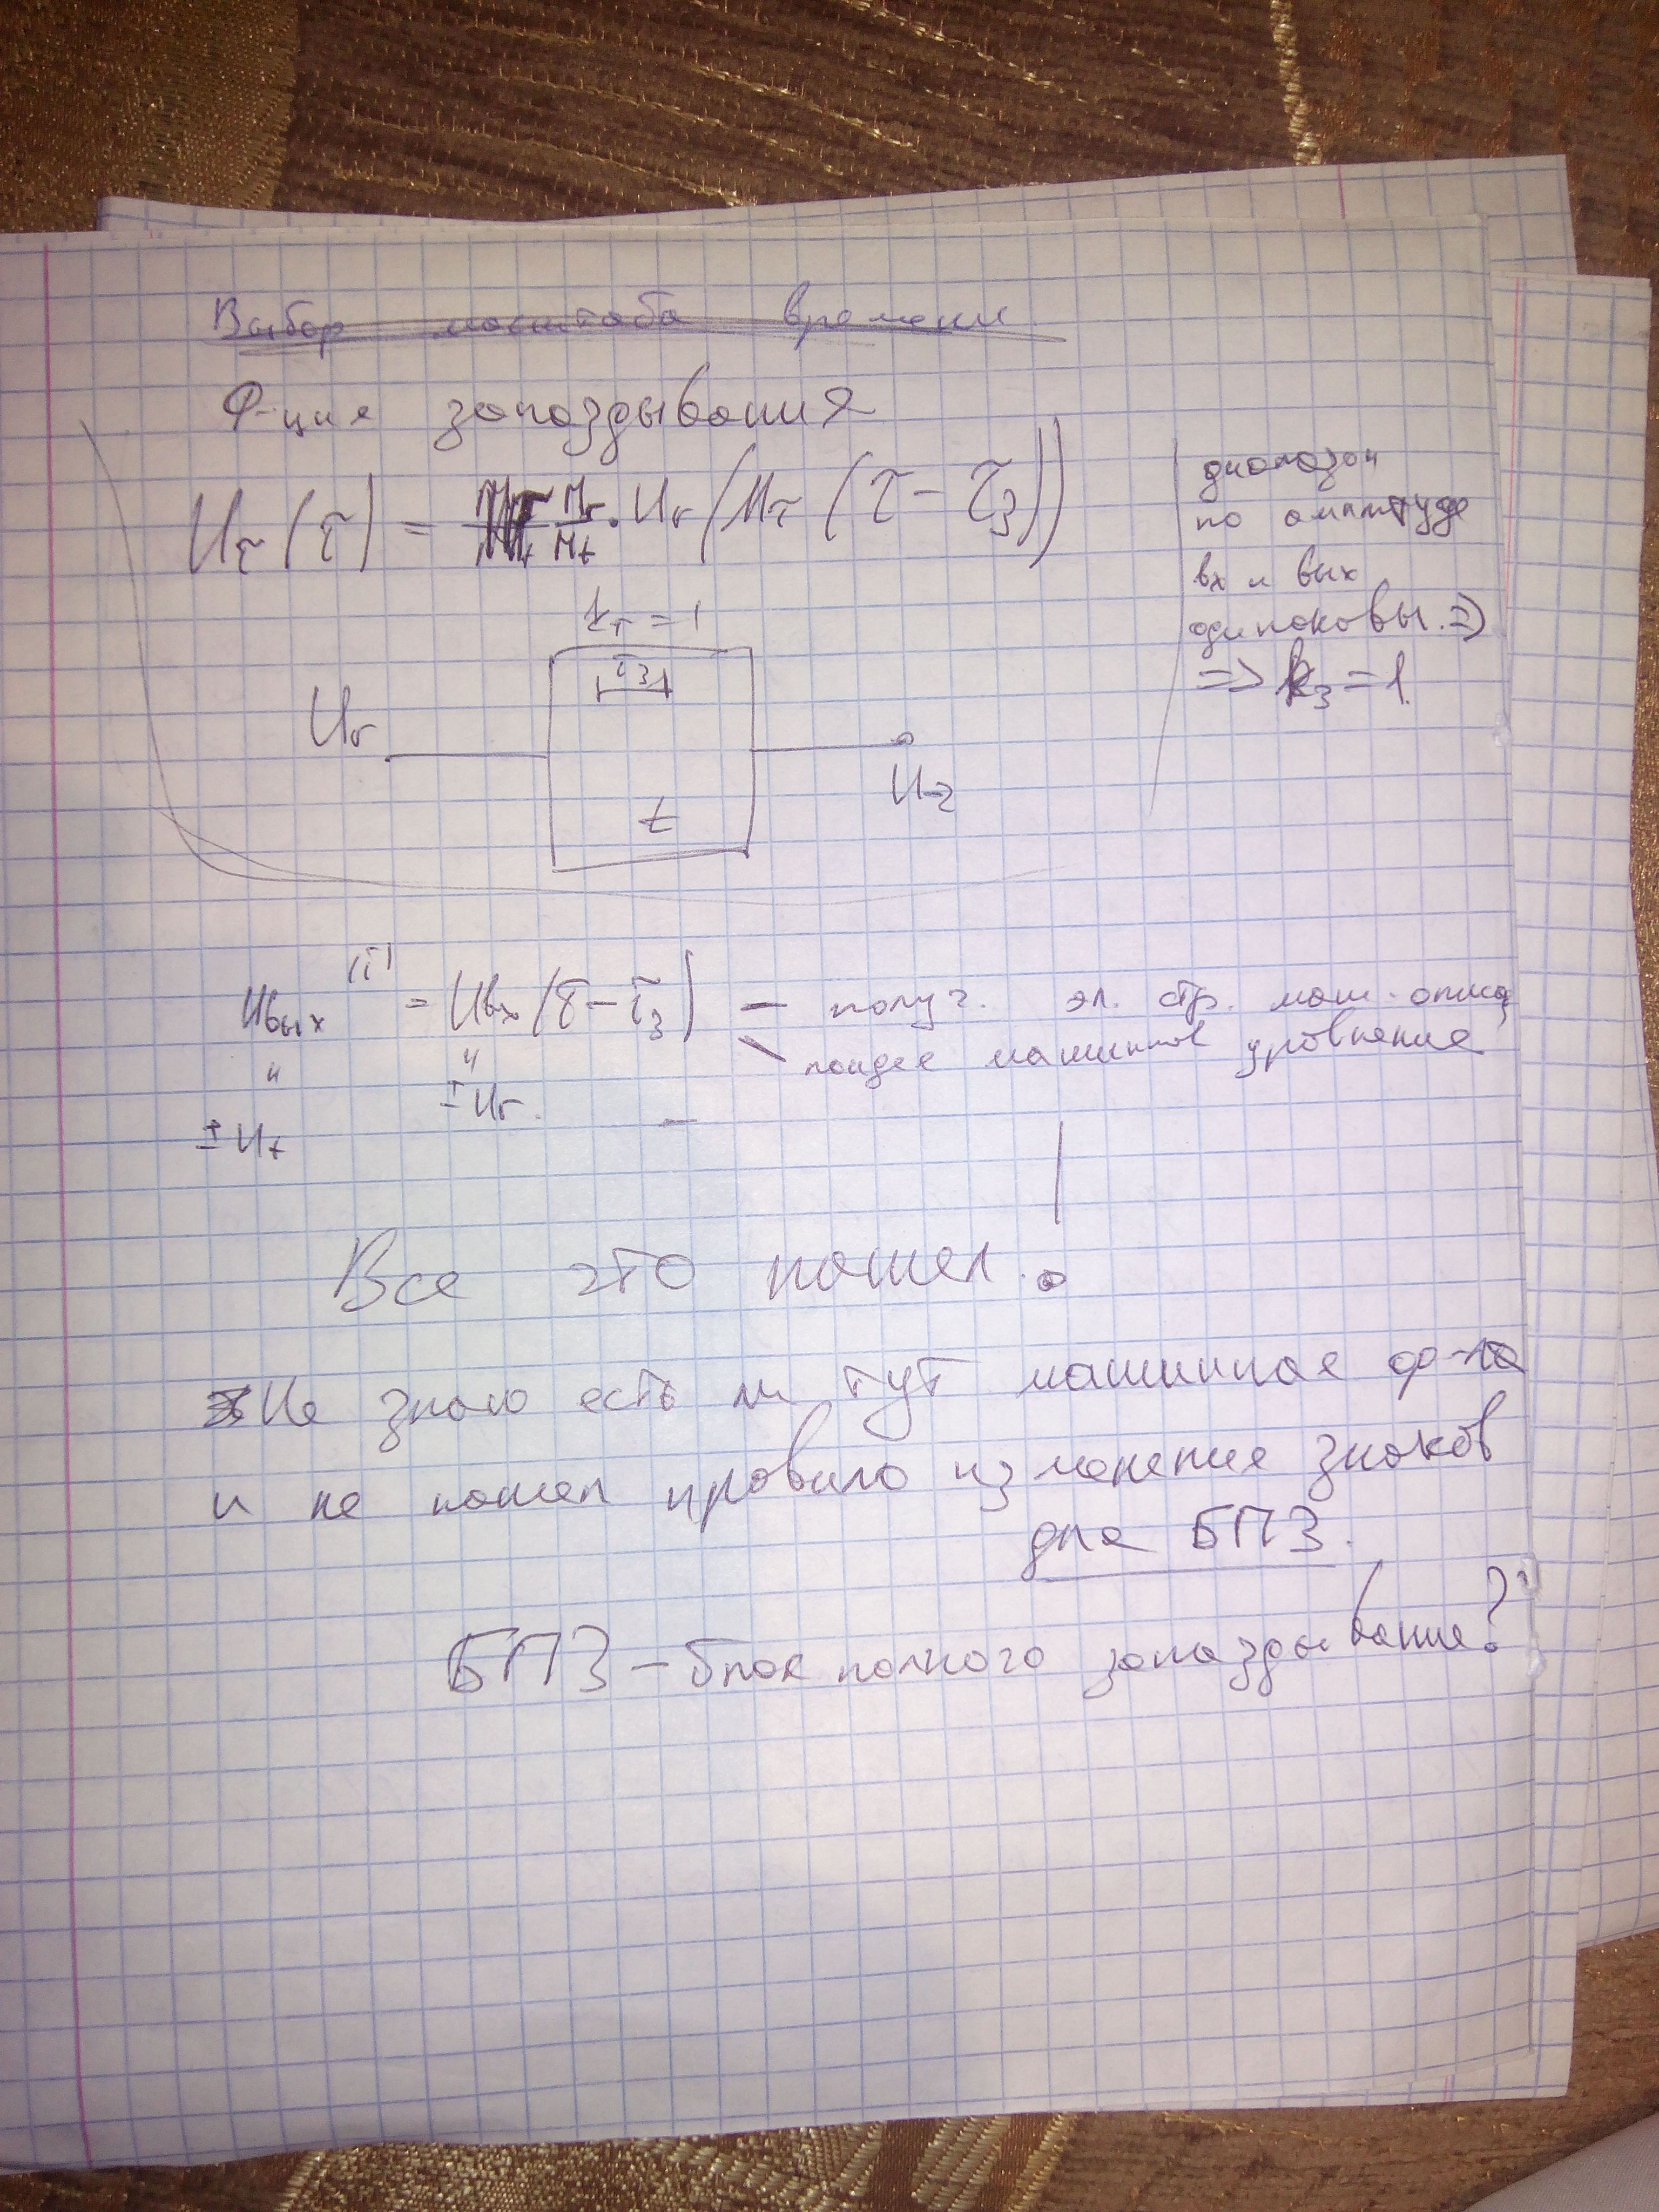 Выбор масштаба времени
Ф-ция запаздывания
U_τ(τ) = M_r/M_t · U_r(M_τ(τ - τ_3))
k_τ = 1
τ_3
U_r
t
диапазон
по амплтуде
вх и вых
одинаковы. =>
=> k_3 = 1.
U_вых(τ) = U_вх(τ - τ_3) — получ. эл. стр. маш.
машинное уровнение
" "
± U_r.
± U_t
Все это нашел!
Не знаю есть ли тут машинная ф-ла
и не нашел правило изменение знаков
для БПЗ.
БПЗ - блок полного запаздывание?